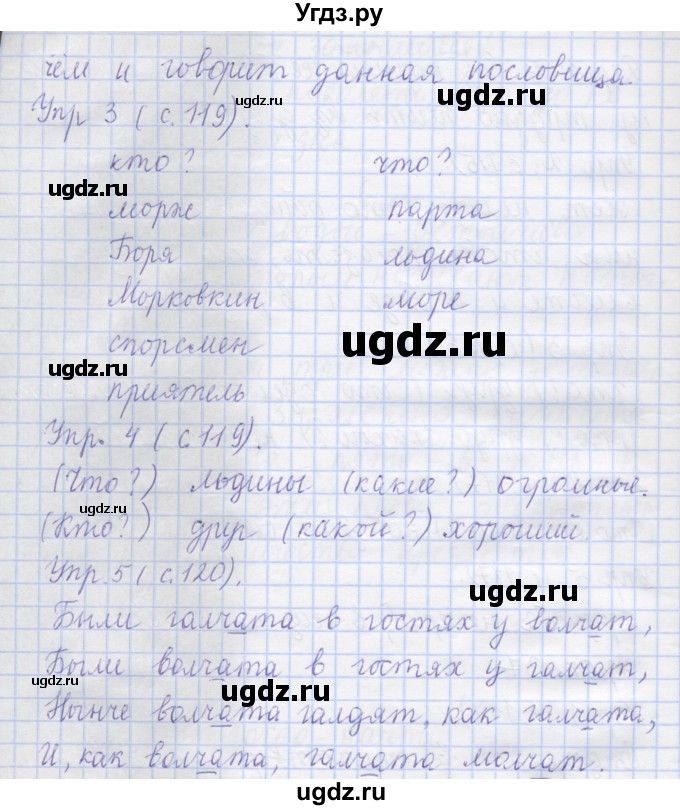 Угдз.ру
чем и говорит данная пословица.
Упр 3 (с.119).
ugdz.ru
ugdz.ru
кто? что?
ugdz.ru
морж парта
Боря льдина
Морковкин море
ugdz.ru
спорсмен
ugdz.ru
приятель
Упр. 4 (с 119).
(Что?) льдины (какие?) огромные.
ugdz.ru
(Кто?) друг (какой?) хороший.
Упр. 5 (с.120).
ugdz.ru
Были галчата в гостях у волчат,
Были волчата в гостях у галчат,
ugdz.ru
ugdz.ru
Нынче волчата галдят, как галчата,
И, как волчата, галчата молчат.
ugdz.ru